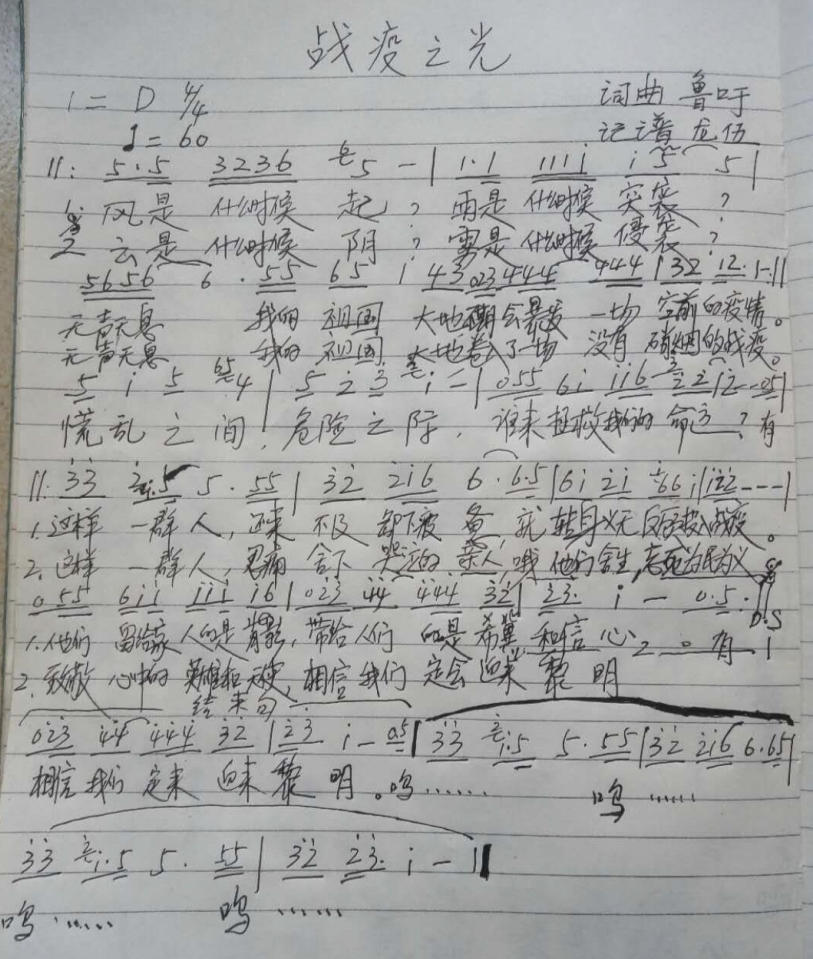 战疫之光
1= D 4/4 词曲 鲁吁
♩=60 记谱 龙伍
||: 5·5 3236 5 - | 1·1 111i i 5 5 |
1. 风是 什么时候 起? 雨是 什么时候 突袭?
2 云是 什么时候 阴? 雾是 什么时候 侵袭?
5656 6 · 55 65 i 43 023 444 444 | 32 12· 1- ||
无声无息 我的 祖国 大地 会暴发 一场 空前的疫情。
无声无息 我的 祖国 大地卷入了一场 没有 硝烟的战疫。
5 i 5 4 | 5 2 3 i - | 055 6i ii6 22 i2 - 05 |
慌乱 之 间, 危险之际, 谁来拯救我们的 命运? 有
||: 33 i·5 5· 55 | 32 2i6 6 · 6·5 | 6i 2i 66 i | i22 - - - |
1. 这样 一群 人, 还来 不及 卸下疲 惫, 就 转身义无反顾投入战疫。
2. 这样 一群 人, 忍痛 舍下 哭泣的 亲人 哦 他们舍生忘死为民为义
055 6ii iii i6 | 023 44 444 32 | 23· i - 0·5· || D.S
1. 他们 留给家人的是 背影, 带给人们 的是 希冀 和信 心。 有
2. 致敬 心中的 英雄和天使, 相信 我们 定会 迎来 黎 明
结束句
023 44 444 32 | 23 i - 0·5 | 33 i·5 5·55 | 32 2i6 6·65 |
相信 我们 定来 迎来 黎 明。呜…… 呜……
33 i·5 5· 55 | 32 23· i - ||
呜…… 呜……